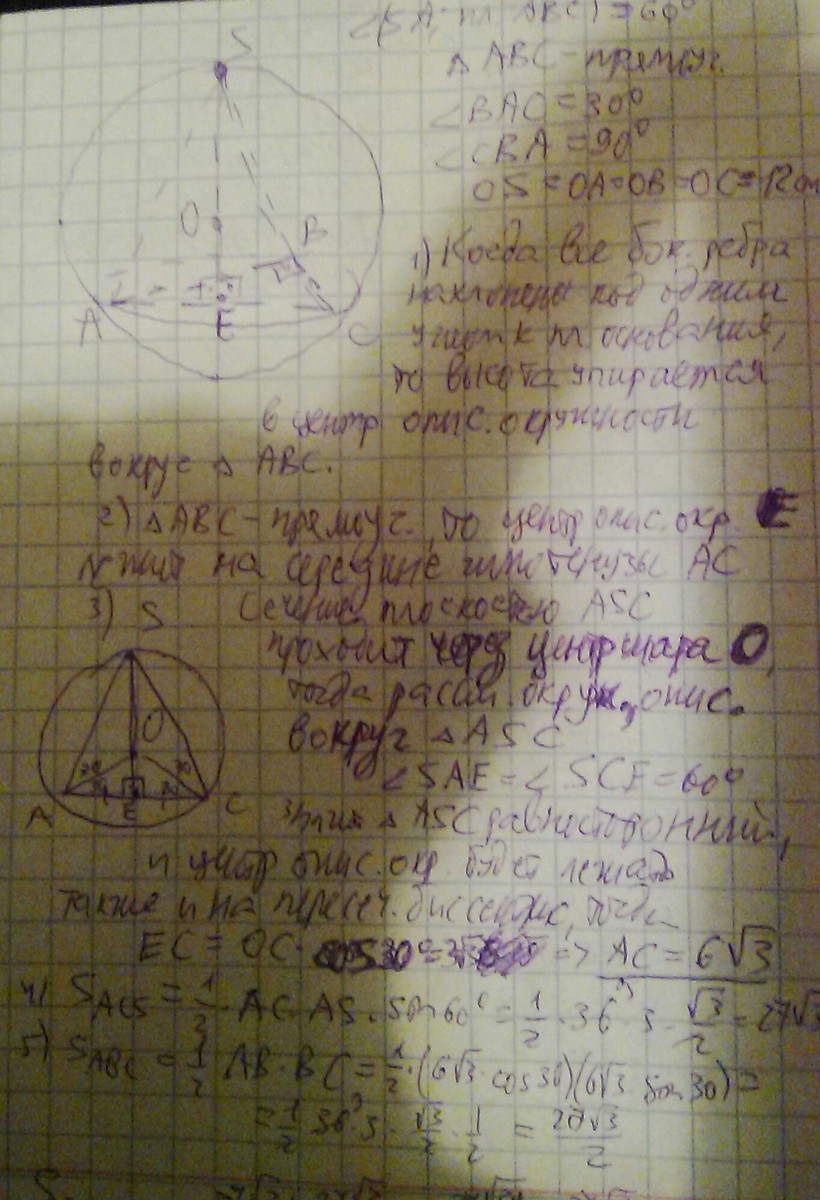 S
∠(SA, пл ABC) = 60°
△ ABC - прямоуг.
∠BAC = 30°
∠CBA = 90°
OS = OA = OB = OC = R
O
B
A
E
C
1) Когда все бок. ребра
наклонены под одним
углом к пл основания,
то высота упирается
в центр опис. окружности
вокруг △ ABC.
2) △ABC - прямоуг., то центр опис. окр. E
лежит на середине гипотенузы AC
3) S Сечение плоскостью ASC
проходит через центр шара O,
тогда расcм. окруж, опис.
вокруг △ ASC
O
∠SAE = ∠SCE = 60°
A E C
значит △ ASC равносторонний,
и центр опис. окр. будет лежать
также и на пересеч. биссектрис, тогда
EC = OC · cos30° => AC = 6√3
4) S ACS = 1/2 · AC · AS · sin 60° = 1/2 · 36 · 3 · √3/2 = 27√3
5) S ABC = 1/2 AB · BC = 1/2 · (6√3 · cos 30)(6√3 · sin 30) =
= 1/2 · 36 · 3 · √3/2 · 1/2 = 27√3/2